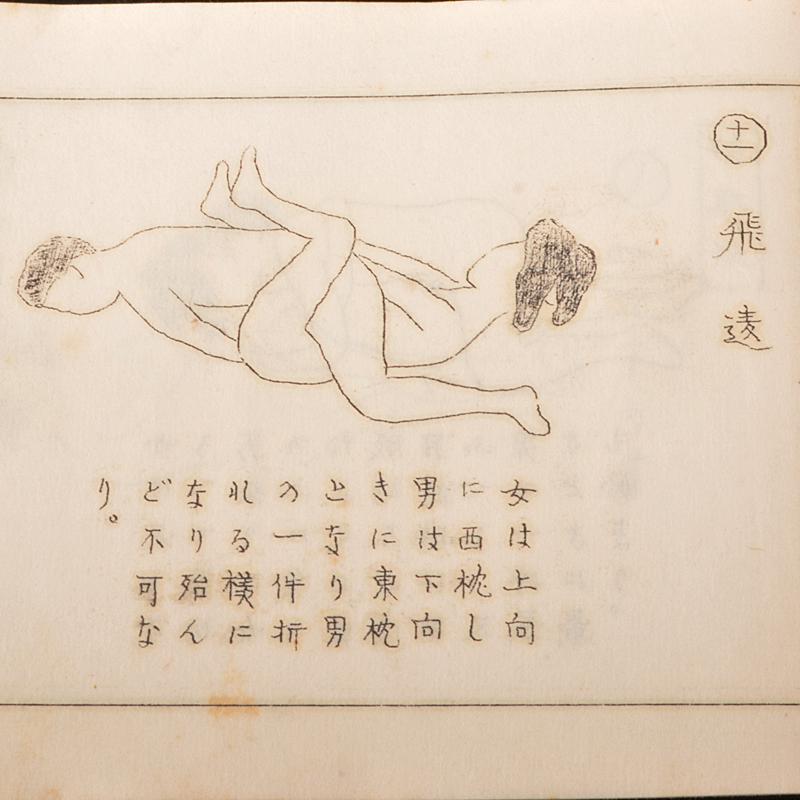 十一
飛遠
女は上向
に西枕し
男は下向
きに東枕
となり男
の一件折
れる様に
なり殆ん
ど不可な
り。